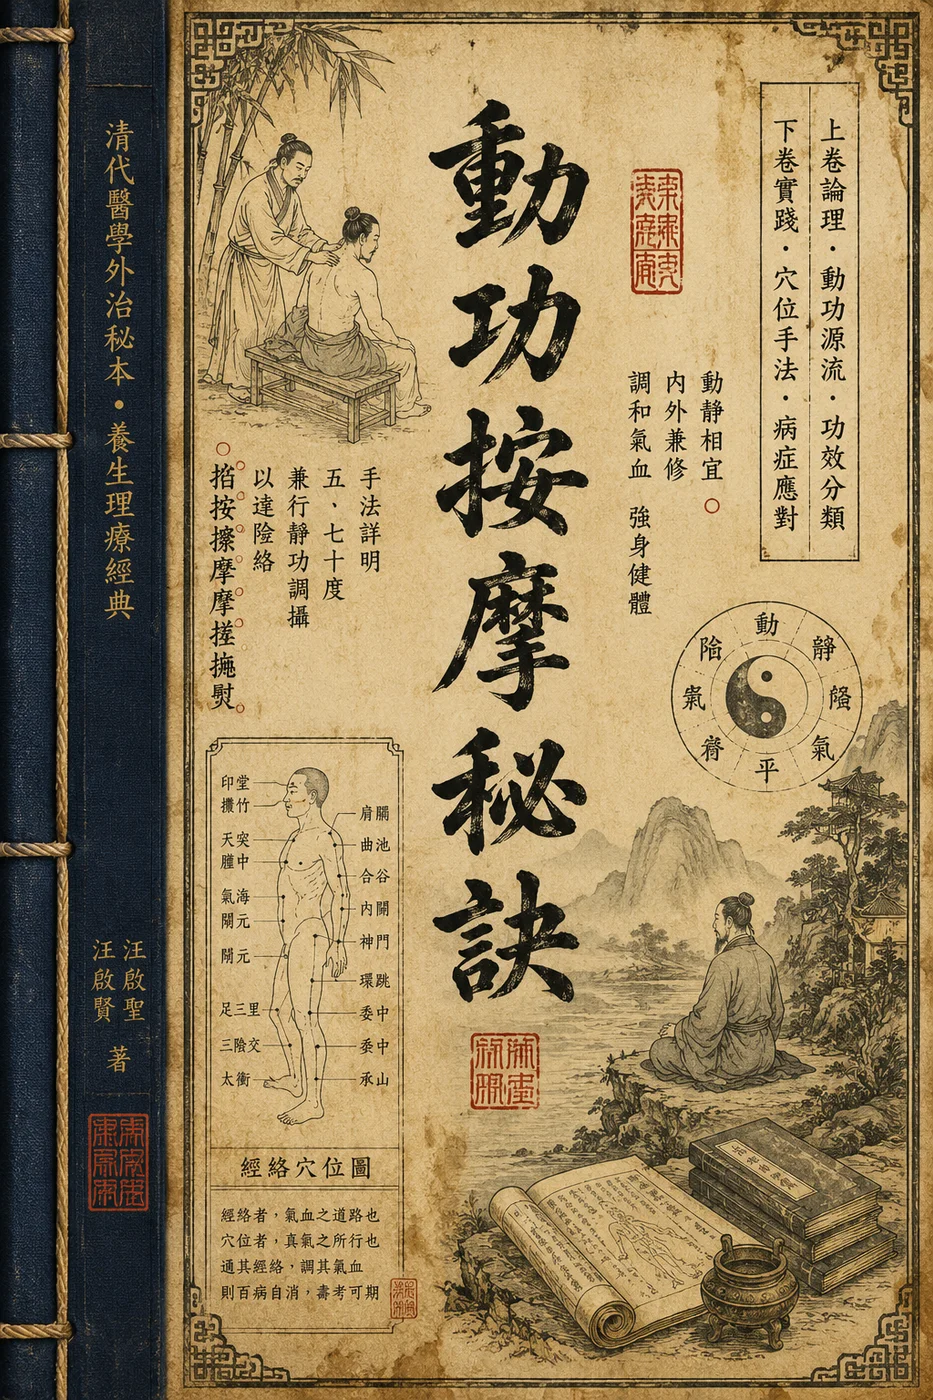 動功按摩秘訣
上卷論理・動功源流・功效分類
下卷實踐・穴位手法・病症應對
動靜相宜
內外兼修
調和氣血 強身健體
手法詳明
五、七十度
兼行靜功調攝
以達險絡
掐按擦摩摩搓
熨
清代醫學外治秘本・養生理療經典
汪啟聖
汪啟賢
著
動
氣
平
印堂
竹
天突
中
氣海
元
元
足三里
三陰交
太衝
肩髃
曲池
合谷
內關
神門
環跳
委中
委中
承山
經絡穴位圖
經絡者，氣血之道路也
穴位者，真氣之所行也
通其經絡，調其氣血
則百病自消，壽考可期